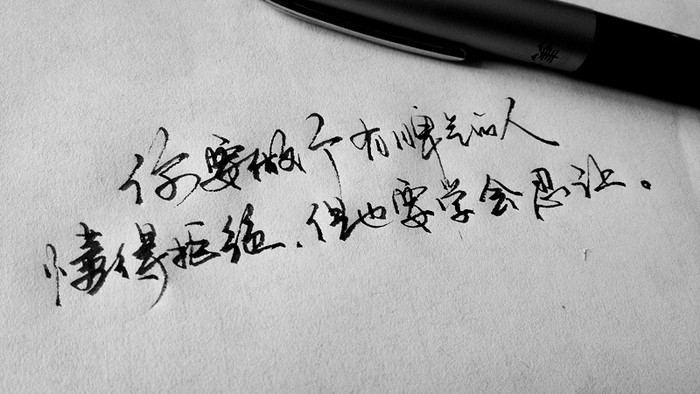 你要做个有脾气的人
懂得拒绝,但也要学会忍让。